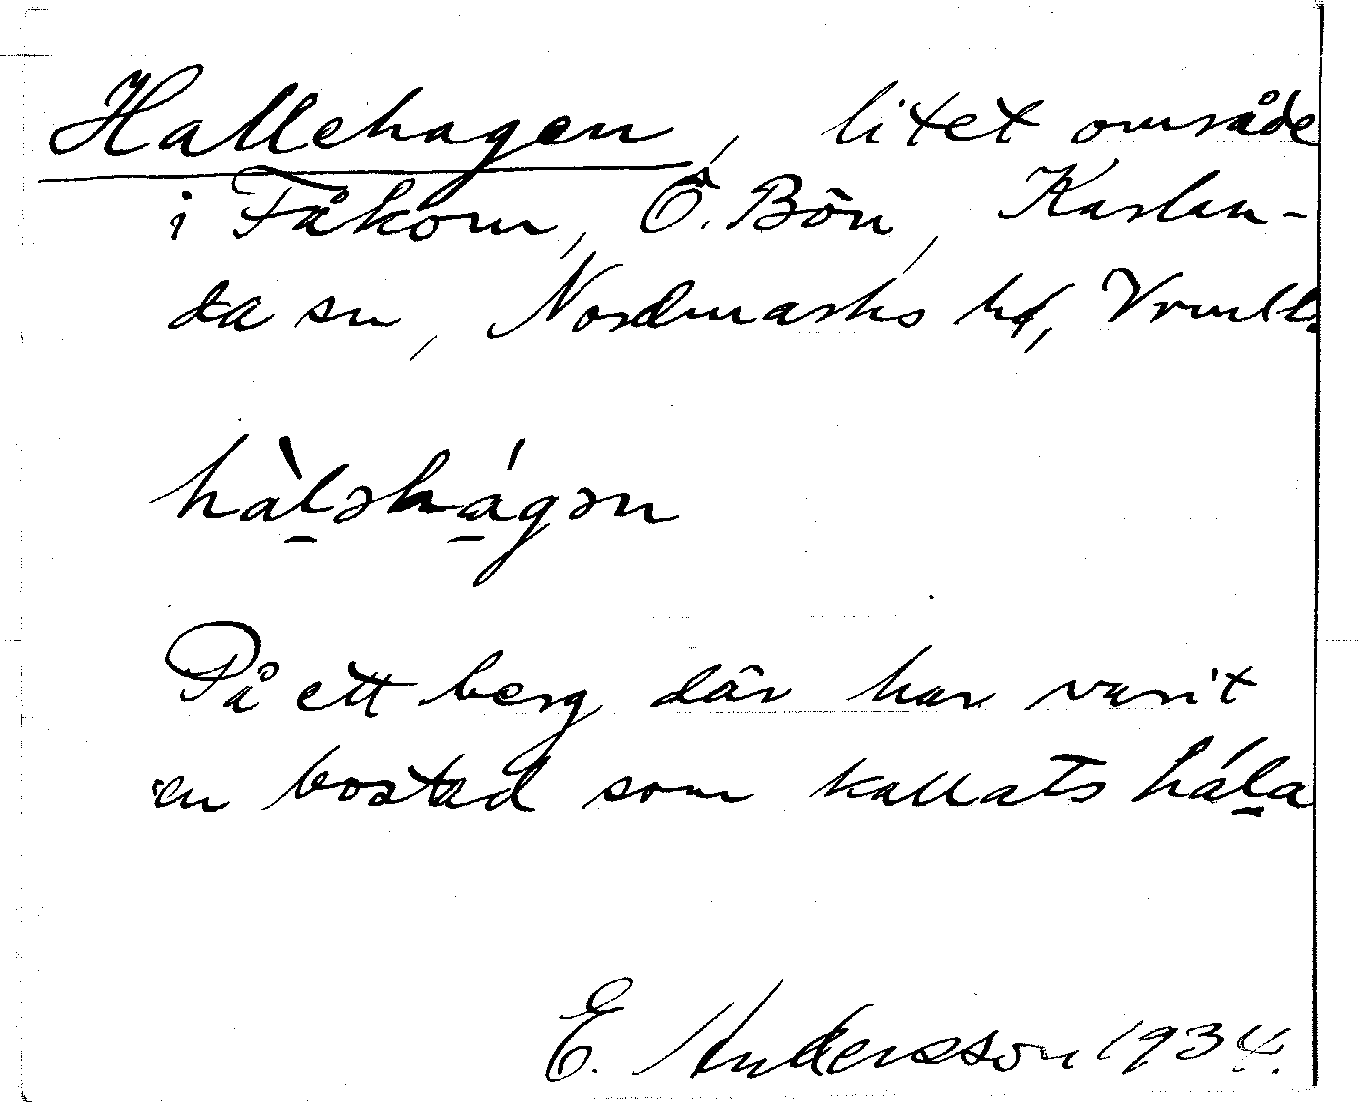 Hallehagen, litet område
i Fåkorn, Ö. Bön, Karlan-
da sn, Nordmarks hd, Vrmlds
hàl̠əhá̠gən
På ett berg där har varit
en bostad som kallats hál̠a
E. Andersson 1934.